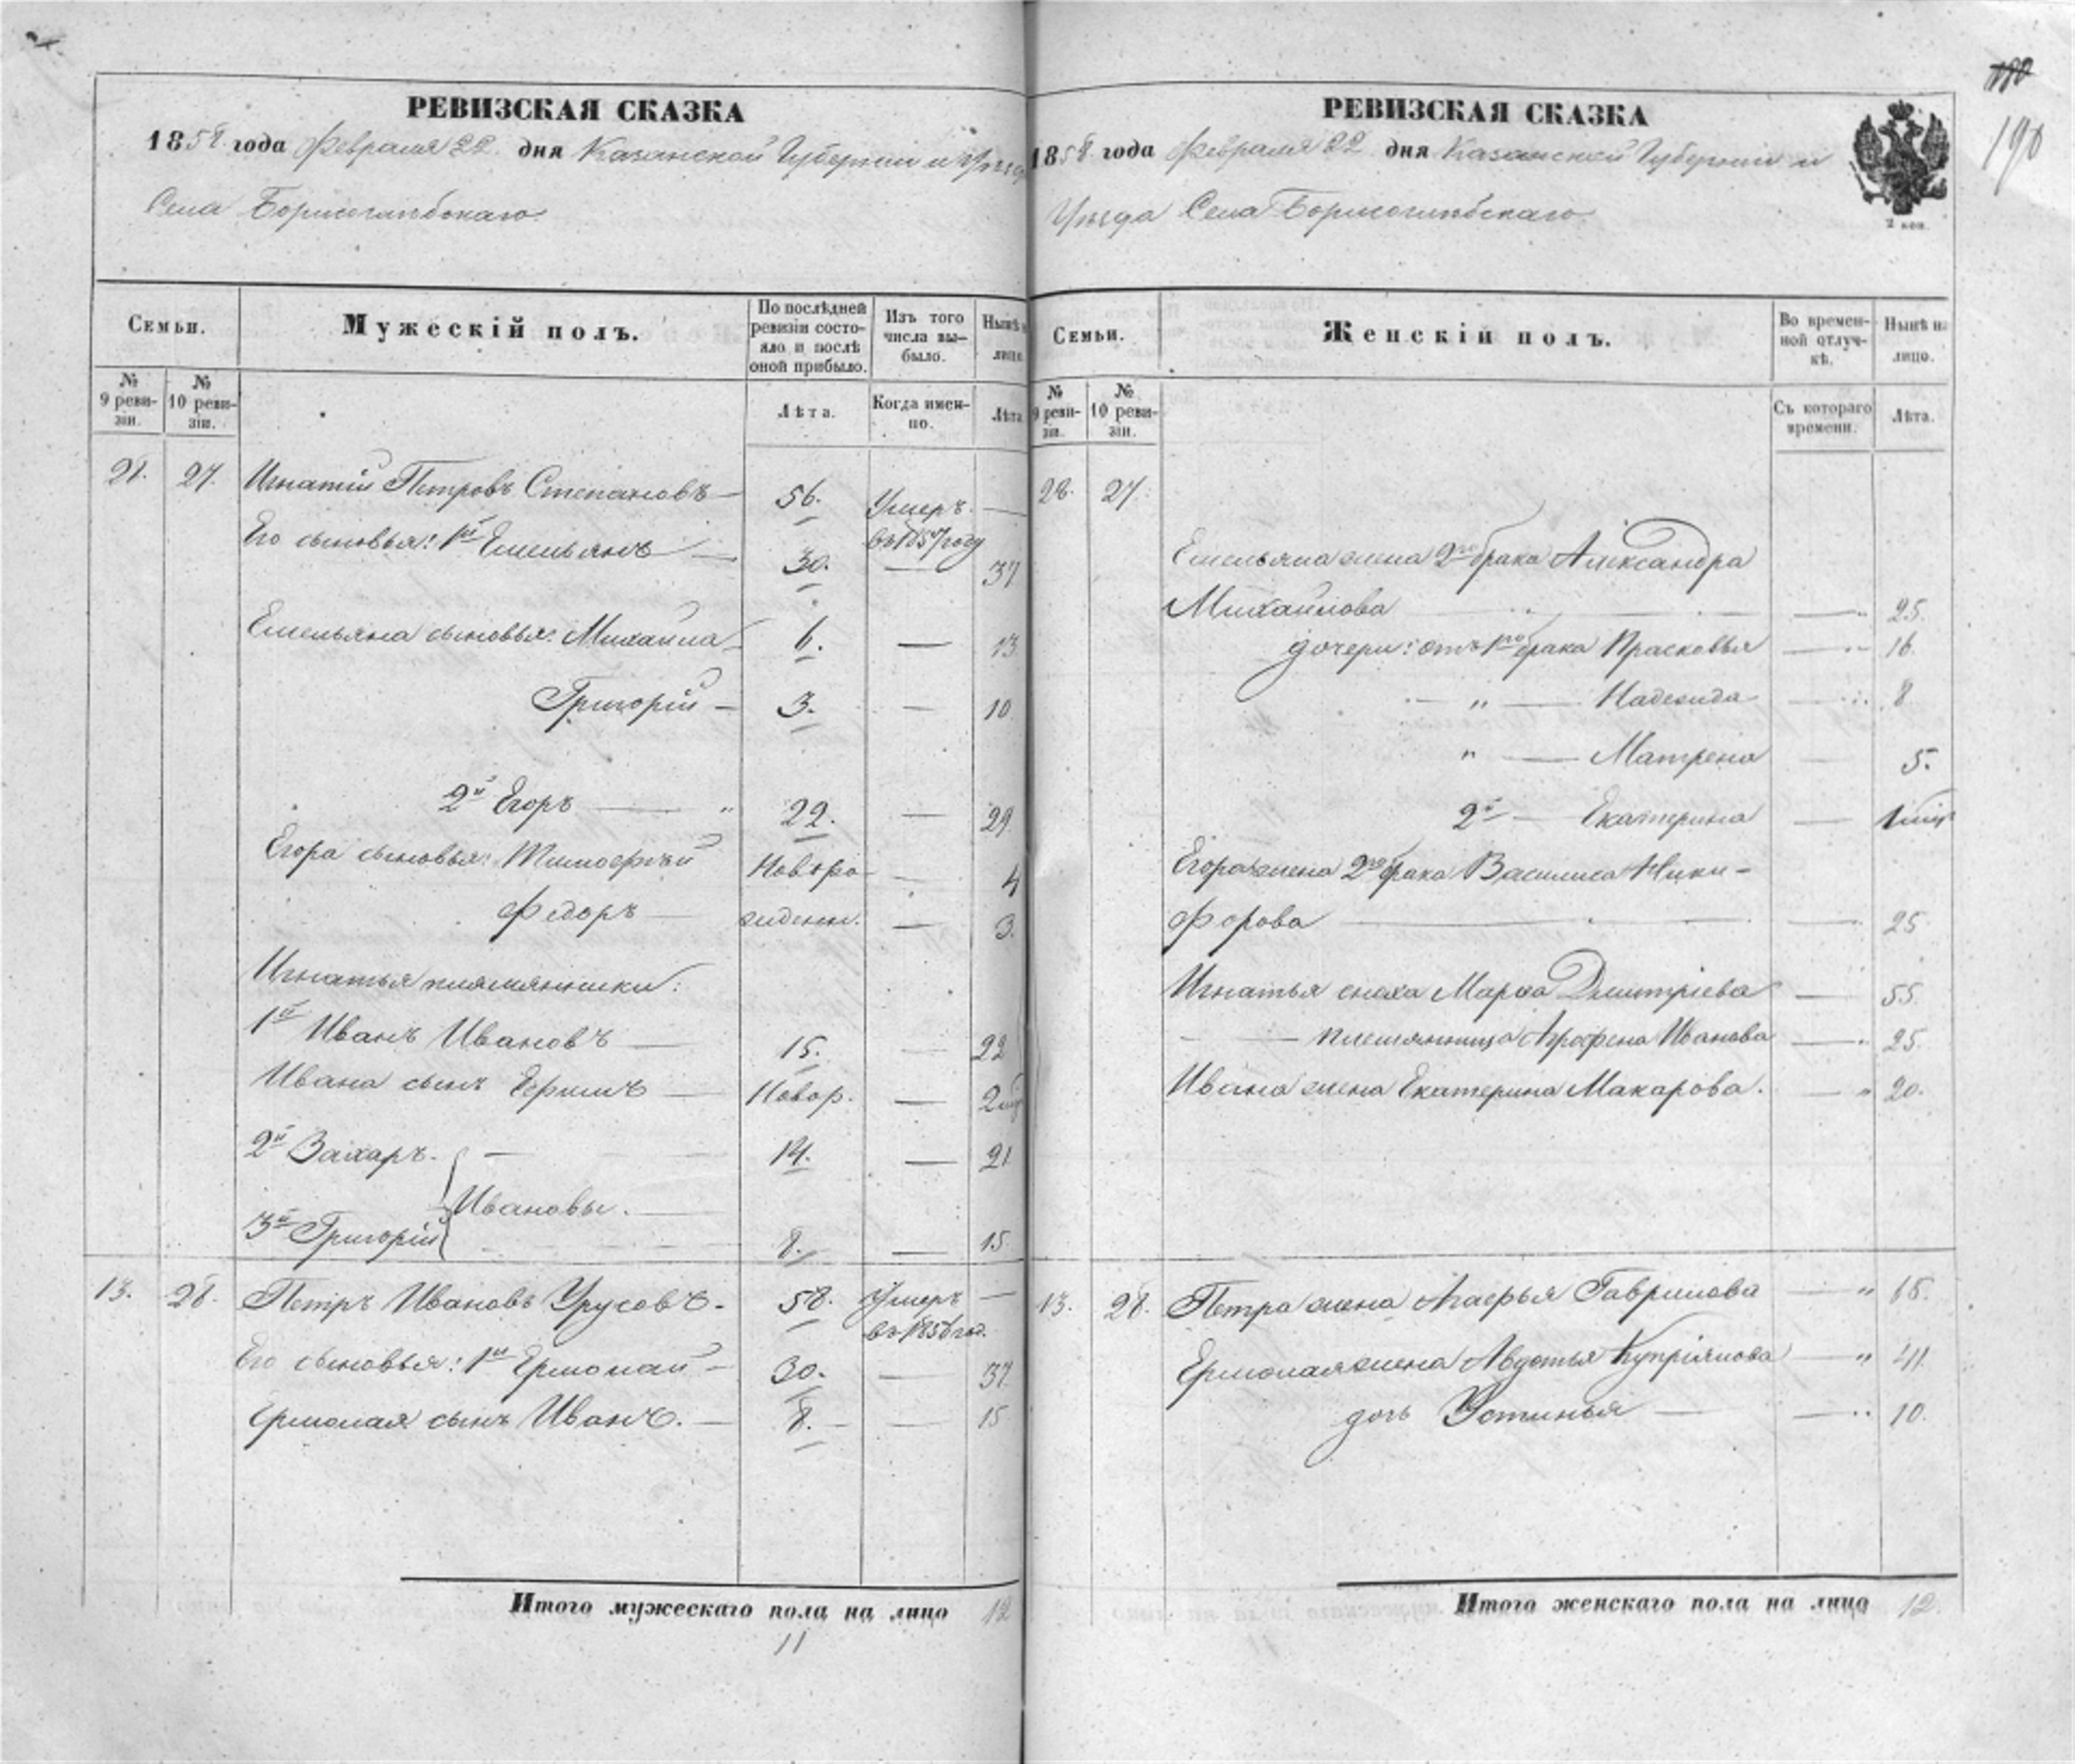 РЕВИЗСКАЯ СКАЗКА
1858 года Февраля 22 дня Казанской Губерніи и Уѣзда
Села Борисоглѣбскаго
Семьи.
Мужескій полъ.
По послѣдней ревизіи состояло и послѣ оной прибыло.
Изъ того числа выбыло.
Нынѣ на лицо.
№ 9 ревизіи.
№ 10 ревизіи.
Лѣта.
Когда именно.
Лѣта
28. 27. Игнатій Петровъ Степановъ — 56. Умеръ въ 1857 году —
Его сыновья: 1й Емельянъ — 30. — 37
Емельяна сыновья: Михайла — 6. — 13
Григорій — 3. — 10
2й Егоръ — " 22. — 29
Егора сыновья: Тимофѣй Новоро- — 4
Федоръ — жденн. — 3.
Игнатья племянники:
1й Иванъ Ивановъ — 15. — 22
Ивана сынъ Ефимъ — Новор. — 2 мѣс
2й Захаръ. — 14. — 21
Ивановы. —
3й Григорій 8. — 15
13. 28. Петръ Ивановъ Урусовъ. 58. Умеръ въ 1856 год. —
Его сыновья: 1й Ермолай — 30. — 37
Ермолая сынъ Иванъ. — 8. — 15
Итого мужескаго пола на лицо 12
11
РЕВИЗСКАЯ СКАЗКА
1858 года Февраля 22 дня Казанской Губерніи и
Уѣзда Села Борисоглѣбскаго
2 коп.
190
Семьи.
Женскій полъ.
Во временной отлучкѣ.
Нынѣ на лицо.
№ 9 ревизіи.
№ 10 ревизіи.
Съ котораго времени.
Лѣта.
28. 27.
Емельяна жена 2го брака Александра
Михайлова — — " 25.
дочери: отъ 1го брака Прасковья — " 16.
" — Надежда — " 8
" — Матрена — 5.
2й — Екатерина — 1 мѣс
Егора жена 2го брака Василиса Ники-
форова — — 25
Игнатья сноха Марфа Дмитріева — 55.
— племянница Аграфена Иванова — " 25.
Ивана жена Екатерина Макарова. — " 20.
13. 28. Петра жена Агафья Гаврилова — "
Ермолая жена Авдотья Купріянова — " 41.
дочь Устинья — — " 10.
Итого женскаго пола на лицо 12.